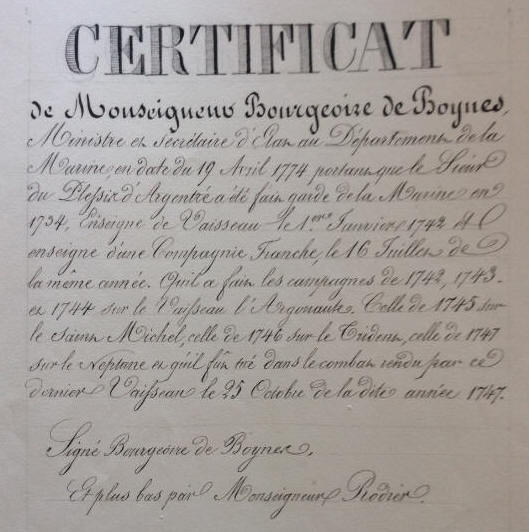 CERTIFICAT
de Monseigneur Bourgeoire de Boynes,
Ministre et secrétaire d'Etat au Département de la
Marine, en date du 19 Avril 1774 portant que le Sieur
du Plessix d'Argentré a été fait garde de la Marine en
1734, Enseigne de Vaisseau le 1.er Janvier 1742 et
enseigne d'une Compagnie Franche, le 16 Juillet de
la même année. Qu'il a fait les campagnes de 1742, 1743.
et 1744 sur le Vaisseau l'Argonaute. Celle de 1745 sur
le Saint Michel, celle de 1746 sur le Trident, celle de 1747
sur le Neptune et qu'il fût tué dans le combat rendu par ce
dernier Vaisseau le 25 Octobre de la dite année 1747.
Signé Bourgeoire de Boynes.
Et plus bas par Monseigneur Rodier.